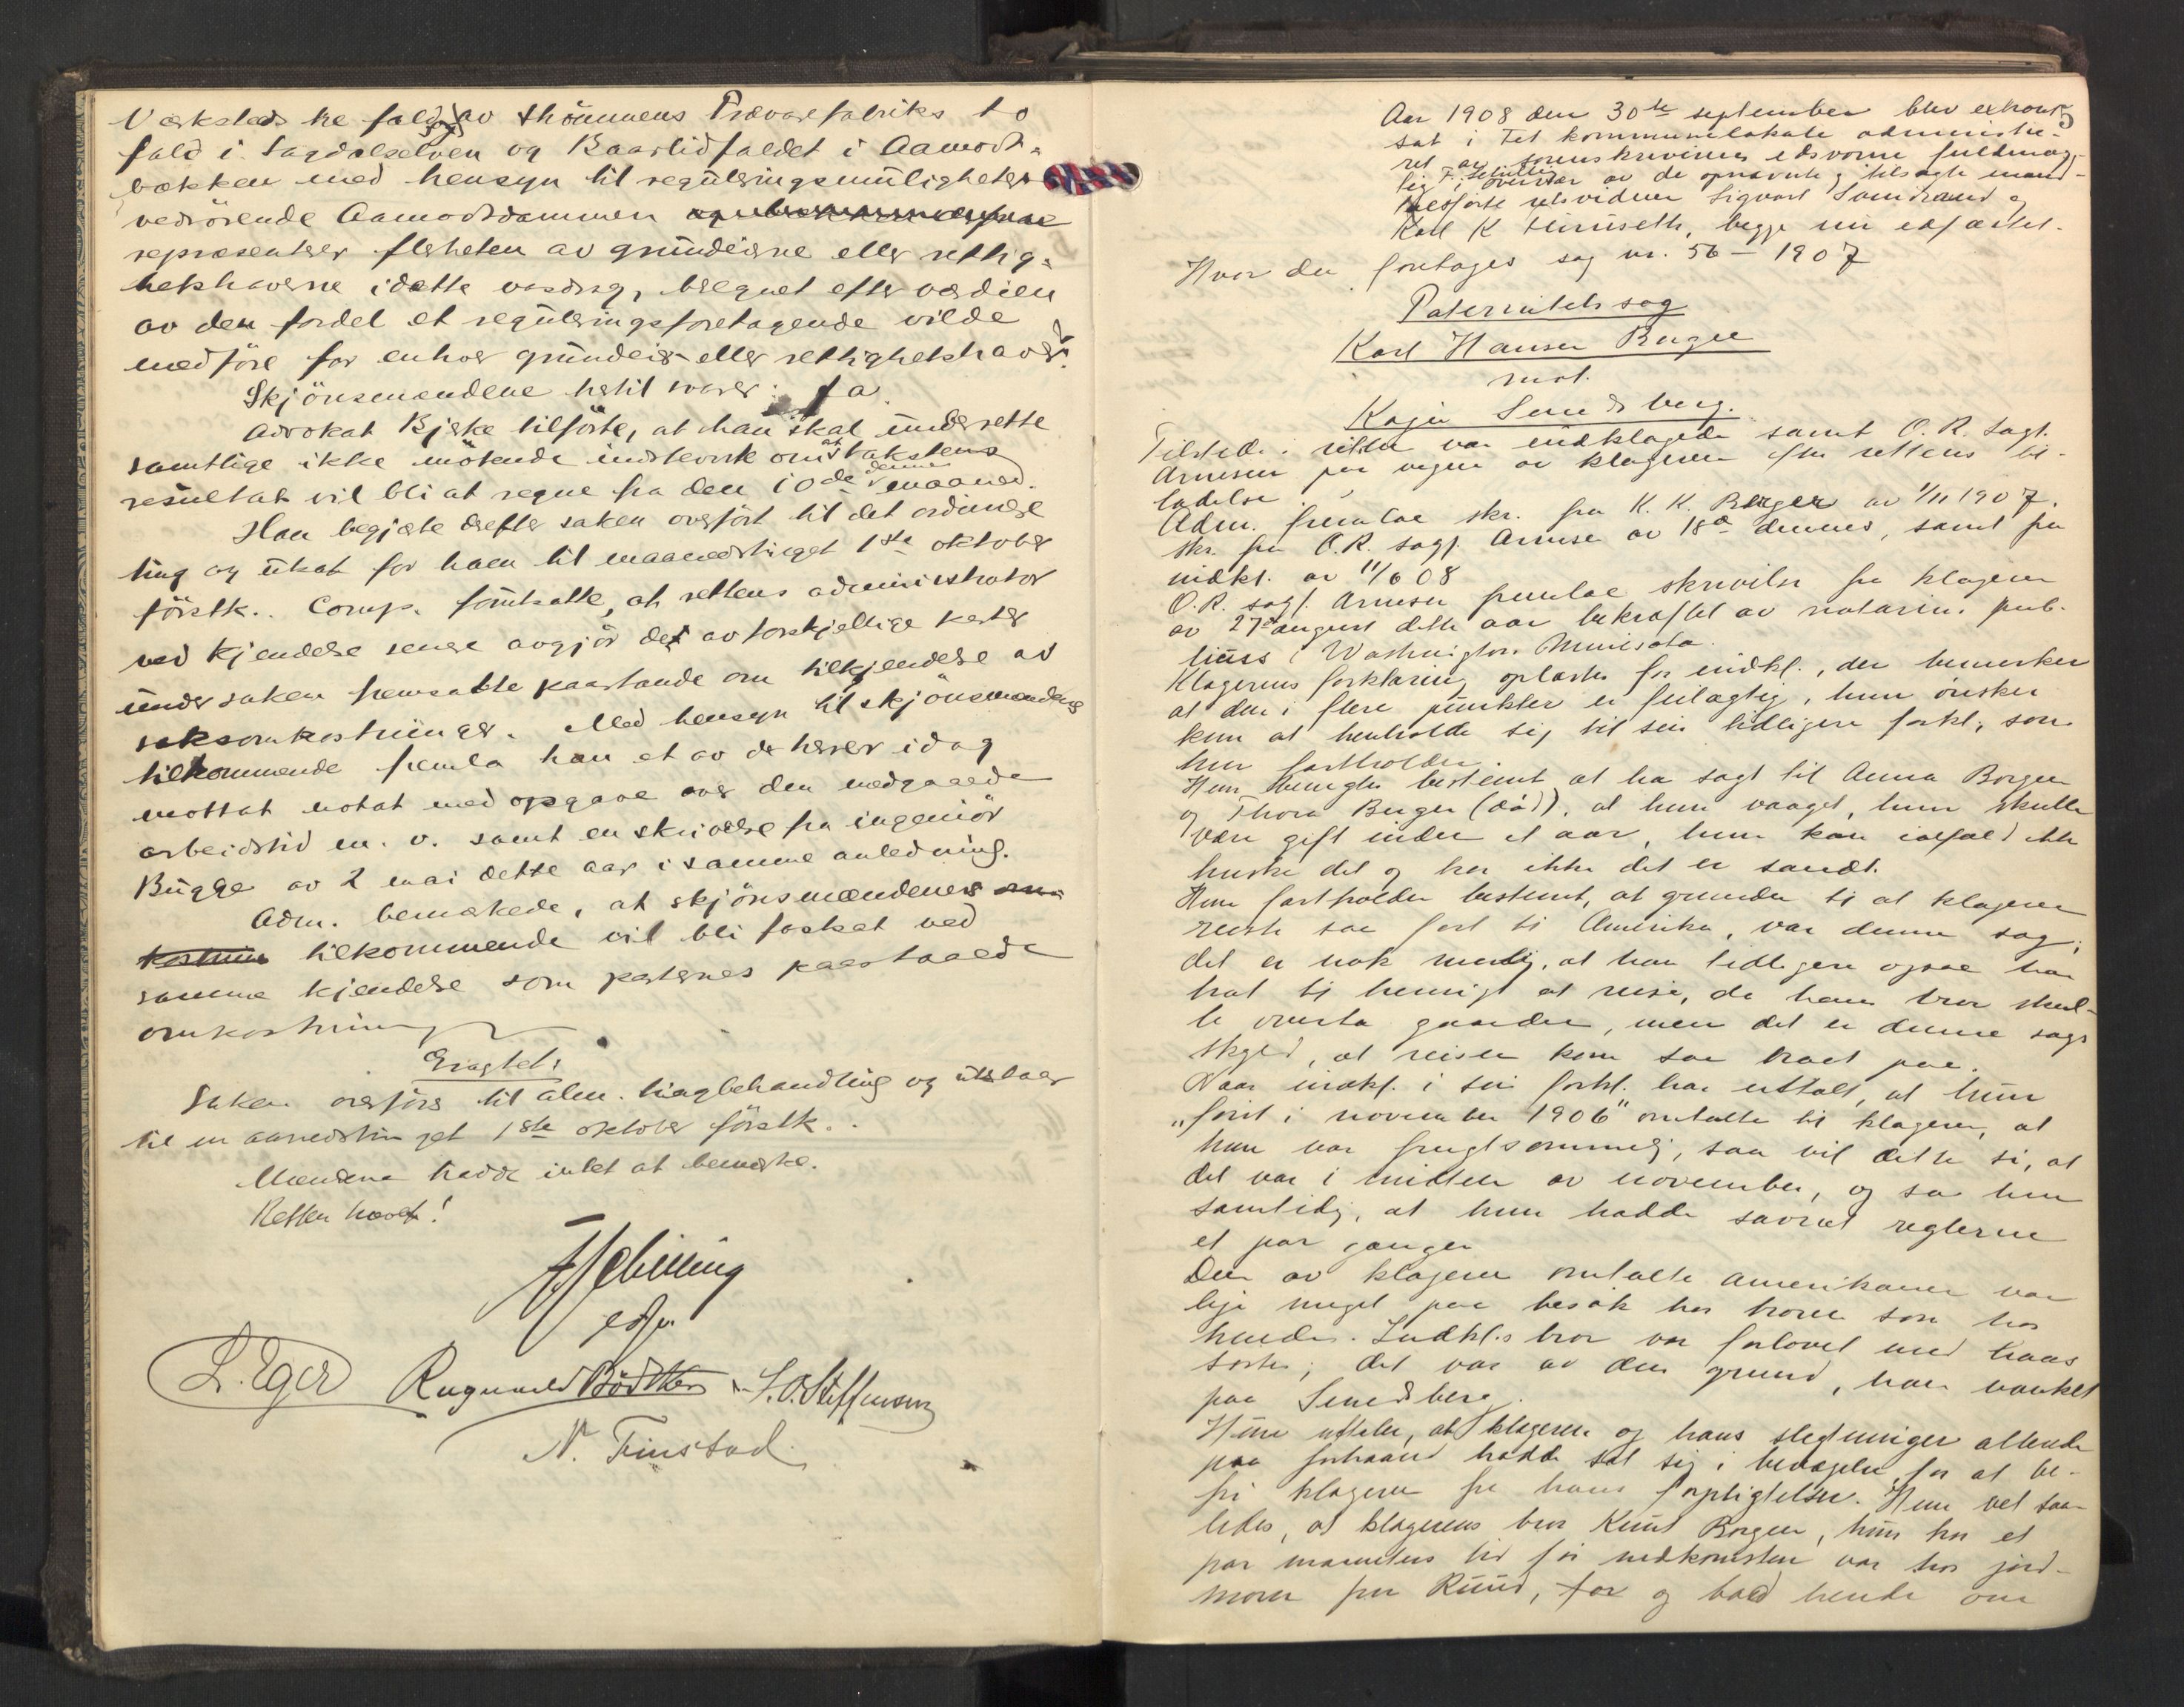 Verksteds tre fald, og av Thönnens Trævarefabriks to
fald i Sagdalselven og Kaarlidfaldet i Aamodt-
bækken med hensyn til reguleringsmuligheter
vedrörende Aamodtdammen
repræsenterer flerheten av grundeierne eller rettig-
hetshaverne i dette vasdrag, beregnet efter værdien
av den fordel et reguleringsforetagende vilde
medföre for enhver grundeier eller rettighetshaver?
Skjönsmændene hertil svarer: Ja.
Advokat Bjerke tilförte, at han skal underrette
samtlige ikke mötende indstevnte om at takstens
resultat vil bli at regne fra den 10de denne maaned.
Han begjærte derefter saken overfört til det ordinære
ting og utsat for ham til maanedstinget 1ste oktober
förstk.. Comp. forutsatte, at rettens administrator
ved kjendelse senere avgjör de av forskjellige parter
under saken fremsatte paastande om tilkjendelse av
saksomkostninger. Med hensyn til skjönsmændenes
tilkommende fremla han et av de herrer idag
mottat notat med opgave over den medgaaede
arbeidstid m. v. samt en skrivelse fra ingeniör
Bugge av 2 mai dette aar i samme anledning.
Adm. bemerkede, at skjönsmændenes om-
kostnin tilkommende vil bli fastsat ved
samme kjendelse som parternes paastaaede
omkostninger
Eragtet:
Saken overföres til alm. tingbehandling og utstaar
til maanedstinget 1ste oktober förstk..
Mændene hadde intet at bemerke.
Retten hævet!
F Schilling
edf.
L. Eger Ragnvald Bödtker S. O. Steffensen
N. Finstad.
5
Aar 1908 den 30te september blev extraret
sat i Tet kommunelokale administre-
ret av sorenskriverens edsvorne fuldmæg-
tig F. Schilling i overvær av de opnævnte og tilsagte mand-
talsförte retsvidner Sigvart Sundrand og
Karl K , begge nu edfæstet.
Hvor da foretages sag nr. 56 - 1907
Paternitetssag
Karl Hansen Berger
mot.
Kaja Sundsberg.
Tilstede i retten var indklagede samt O. R. sagf.
Arnesen paa vegne av klageren efter rettens til-
ladelse
Adm. fremlae skr. fra K. K. Berger av 1/11 1907.
skr. fra O.R. sagf. Arnesen av 18de dennes, samt fra
indkl. av 11/6 08
O.R. sagf. Arnesen fremlae skrivelse fra klageren
av 27de august dette aar bekræftet av notarius pub-
licus i Washington Minisota.
Klagerens forklaring oplæstes for indkl., der bemerker
at den i flere punkter er feilagtig, hun önsker
kun at henholde sig til sin tidligere forkl., som
hun fastholder.
Hun benegter bestemt at ha sagt til Anna Borgen
og Thora Berger (död), at hun vaaget, hun skulle
være gift inden et aar, hun kan ialfald ikke
huske det og tror ikke det er sandt.
Hun fastholder bestemt, at grunden til at klageren
reiste saa fort til Amerika, var denne sag;
det er nok mulig, at han tidligere ogsaa har
hat til hensigt at reise, da hans bror skul-
le overta gaarden, men det er denne sags
skyld, at reisen kom saa brat paa.
Naar indkl. i sin forkl. har uttalt, at hun
"först i november 1906" omtalte til klageren, at
hun var frugtsommelig, saa vil dette si, at
det var i midten av november, og sa hun
samtidig, at hun hadde savnet reglerne
et par ganger
Den av klageren omtalte amerikaner var
like meget paa besök hos broren som hos
hende. Indkl.s bror var forlovet med hans
söster; det var av den grund, han vanket
paa Sundsberg.
Hun uttaler, at klageren og hans slegtninger allerede
paa forhaand hadde sat sig i bevægelse for at be-
fri klageren fra hans forpligtelser. Hun vet saa-
ledes, at klagerens bror Knut Borgen, hun for et
par maaneters tid för nedkomsten var hos jord-
moren fru Ruud, for og bad hende om